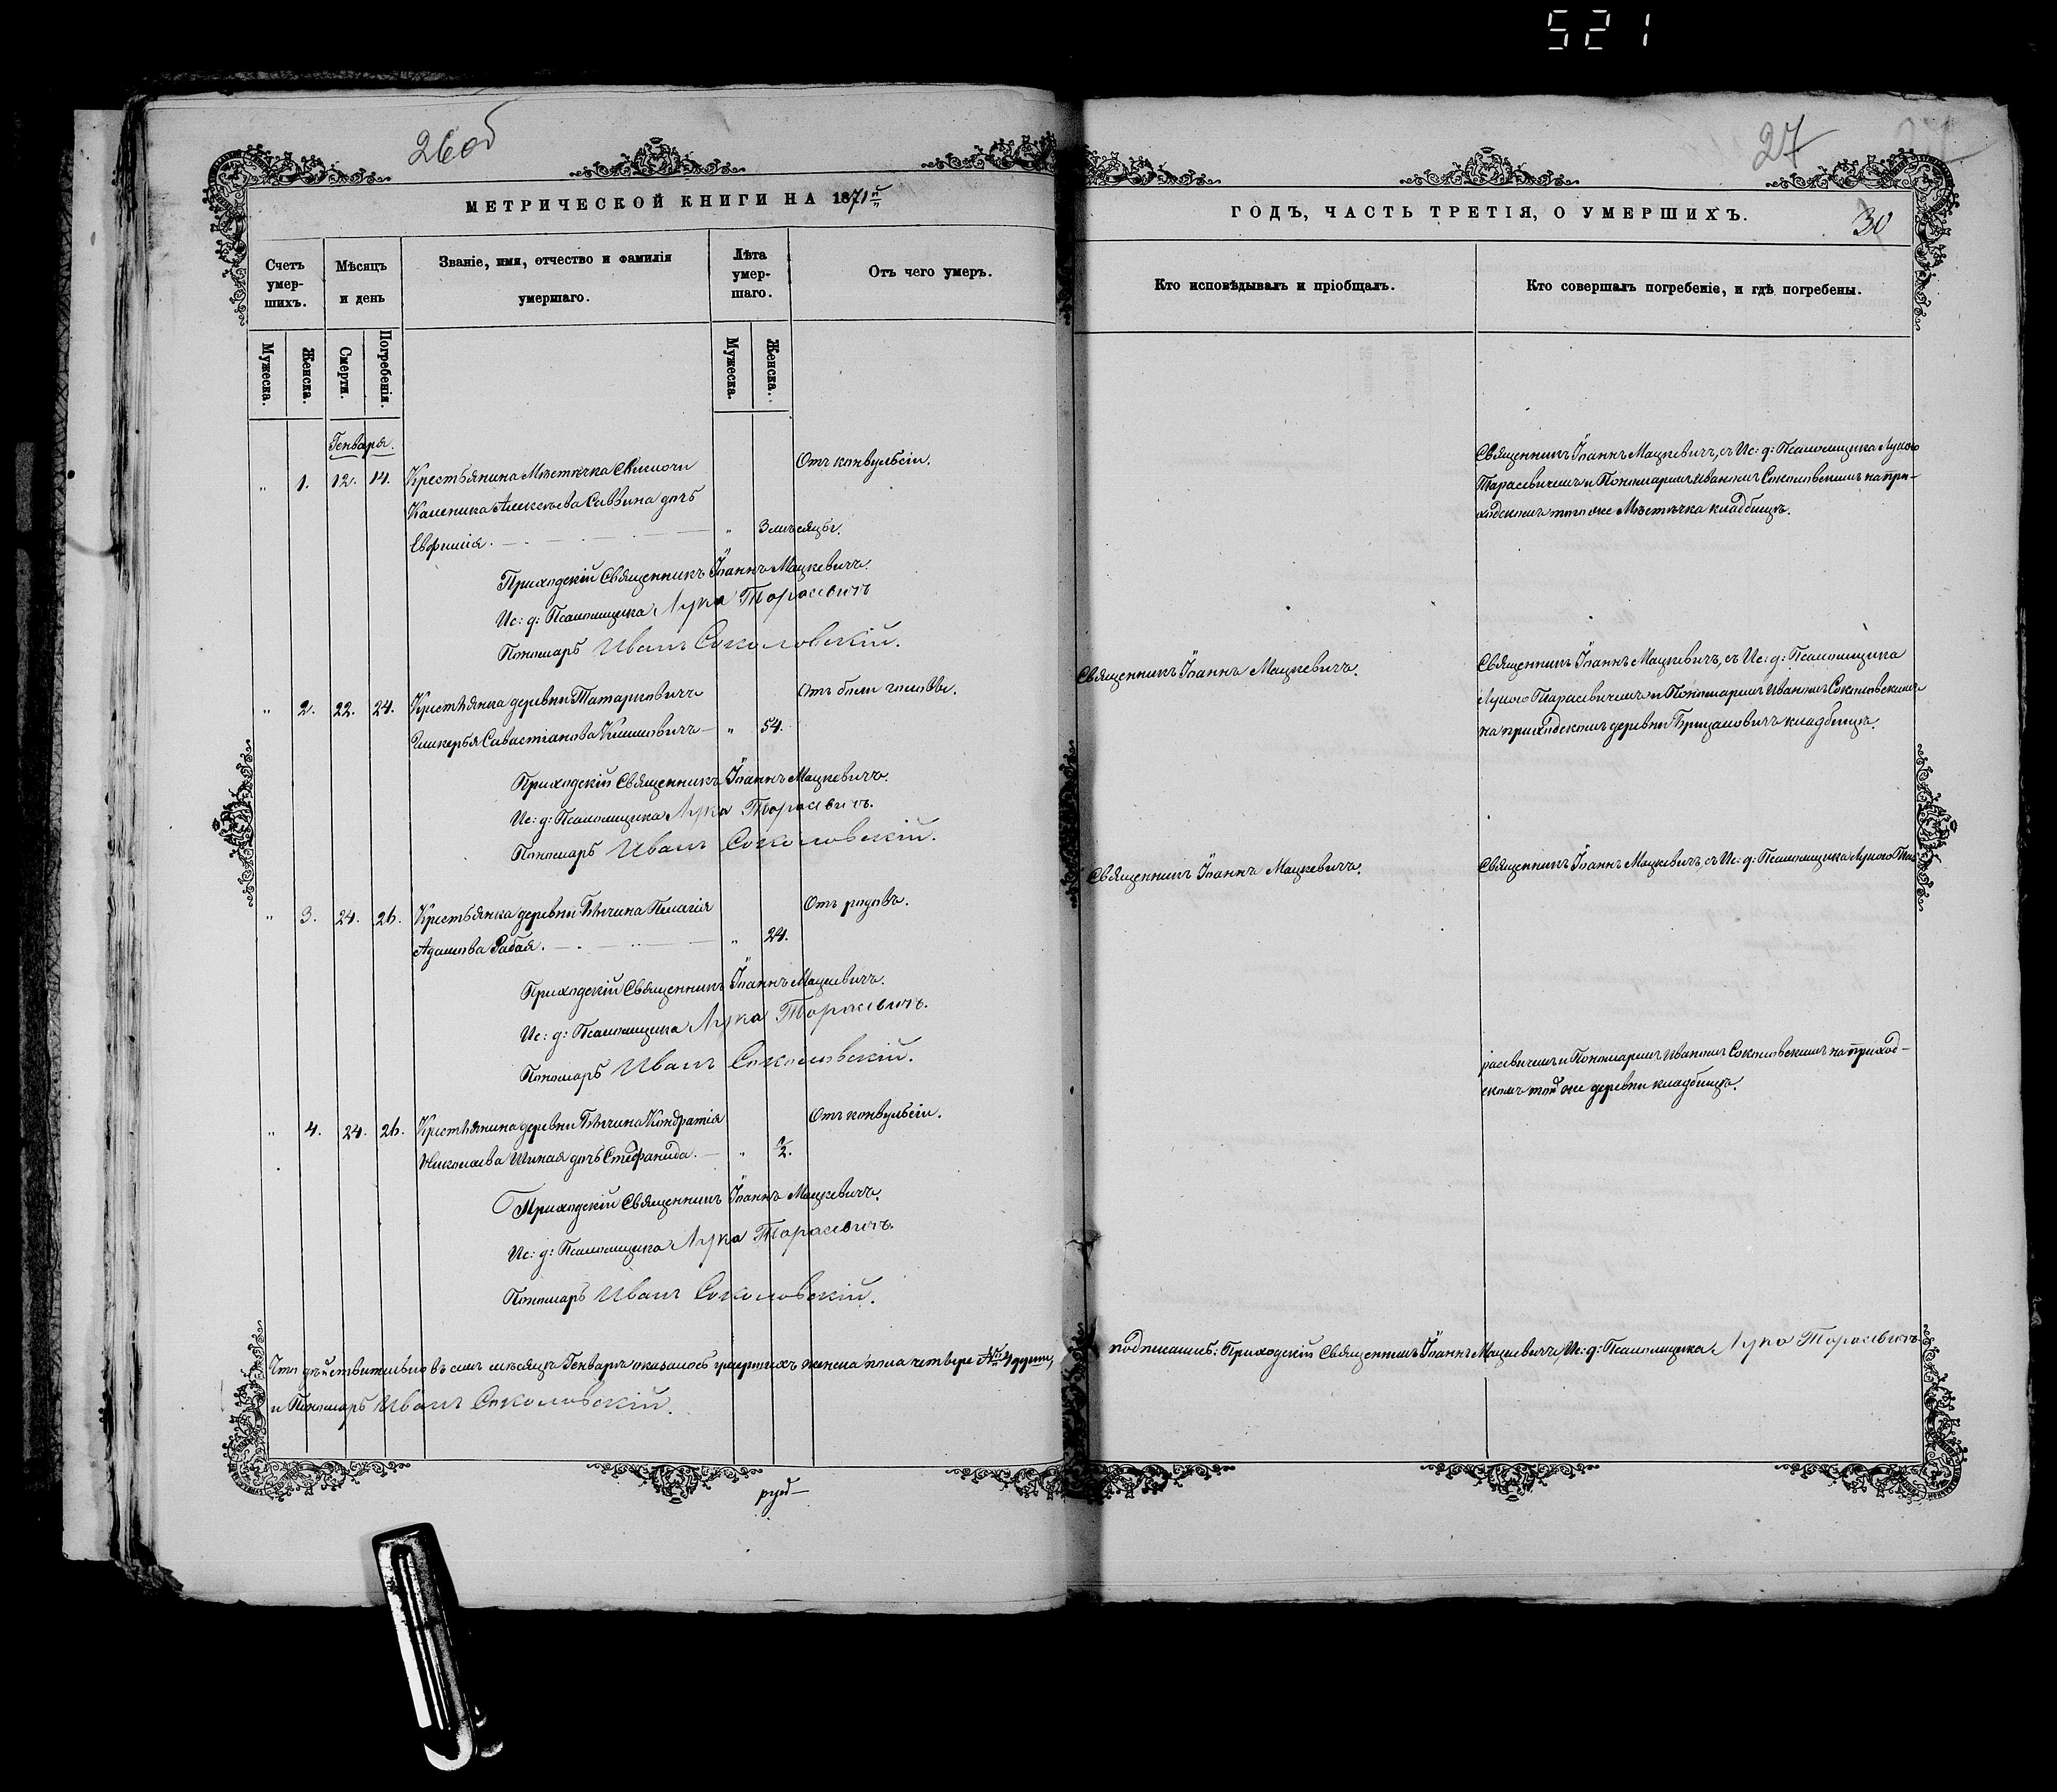 521
26об
27
МЕТРИЧЕСКОЙ КНИГИ НА 1871й
ГОДЪ, ЧАСТЬ ТРЕТІЯ, О УМЕРШИХЪ.
30
Счетъ умер-шихъ.
Мѣсяцъ и день
Званіе, имя, отчество и фамилія
умершаго.
Лѣта умер-шаго.
Отъ чего умеръ.
Кто исповѣдывалъ и пріобщалъ.
Кто совершалъ погребеніе, и гдѣ погребены.
Мужеска.
Женска.
Смерти.
Погребенія.
Мужеска.
Женска.
Генваря.
„ 1. 12. 14. Крестьянина Мѣстечка Свислочи
Отъ конвульсіи.
Каленика Алексѣева Саввина дочь
Евфимія. „ 3 мѣсяцы.
Священникъ Іоаннъ Мацкевичъ, съ Ис: д: Псаломщика Лукою
Тарасевичемъ и Пономаремъ Иваномъ Соколовскимъ на при-
ходскомъ того же Мѣстечка кладбищѣ.
Приходскій Священникъ Іоаннъ Мацкевичъ.
Ис: д: Псаломщика Лука Тарасевичъ
Пономарь Иванъ Соколовскій.
„ 2. 22. 24. Крестьянка деревни Татарковичъ
Отъ боли головы.
Гликерья Савастіанова Климовичъ — „ 54.
Священникъ Іоаннъ Мацкевичъ.
Священникъ Іоаннъ Мацкевичъ, съ Ис: д: Псаломщика
Лукою Тарасевичемъ и Пономаремъ Иваномъ Соколовскимъ
на приходскомъ деревни Брицаловичъ кладбищѣ.
Приходскій Священникъ Іоаннъ Мацкевичъ.
Ис: д: Псаломщика Лука Тарасевичъ.
Пономарь Иванъ Соколовскій.
„ 3. 24. 26. Крестьянка деревни Вѣчина Пелагія
Отъ родовъ.
Адамова Рабая. „ 24.
Священникъ Іоаннъ Мацкевичъ.
Священникъ Іоаннъ Мацкевичъ, съ Ис: д: Псаломщика Лукою Та
Приходскій Священникъ Іоаннъ Мацкевичъ.
Ис: д: Псаломщика Лука Тарасевичъ.
Пономарь Иванъ Соколовскій.
„ 4. 24. 26. Крестьянина деревни Вѣчина Кондратія
Отъ конвульсіи.
Николаева Шпакя дочь Стефанида. — „ ½.
расевичемъ и Пономаремъ Иваномъ Соколовскимъ на приход-
скомъ той же деревни кладбищѣ.
Приходскій Священникъ Іоаннъ Мацкевичъ.
Ис: д: Псаломщика Лука Тарасевичъ.
Пономарь Иванъ Соколовскій.
Что дѣйствительно въ семъ мѣсяцѣ Генварѣ оказалось умершихъ женска пола четверо № 4 души,
подписались: Приходскій Священникъ Іоаннъ Мацкевичъ, Ис: д: Псаломщика Лука Тарасевичъ
и Пономарь Иванъ Соколовскій.